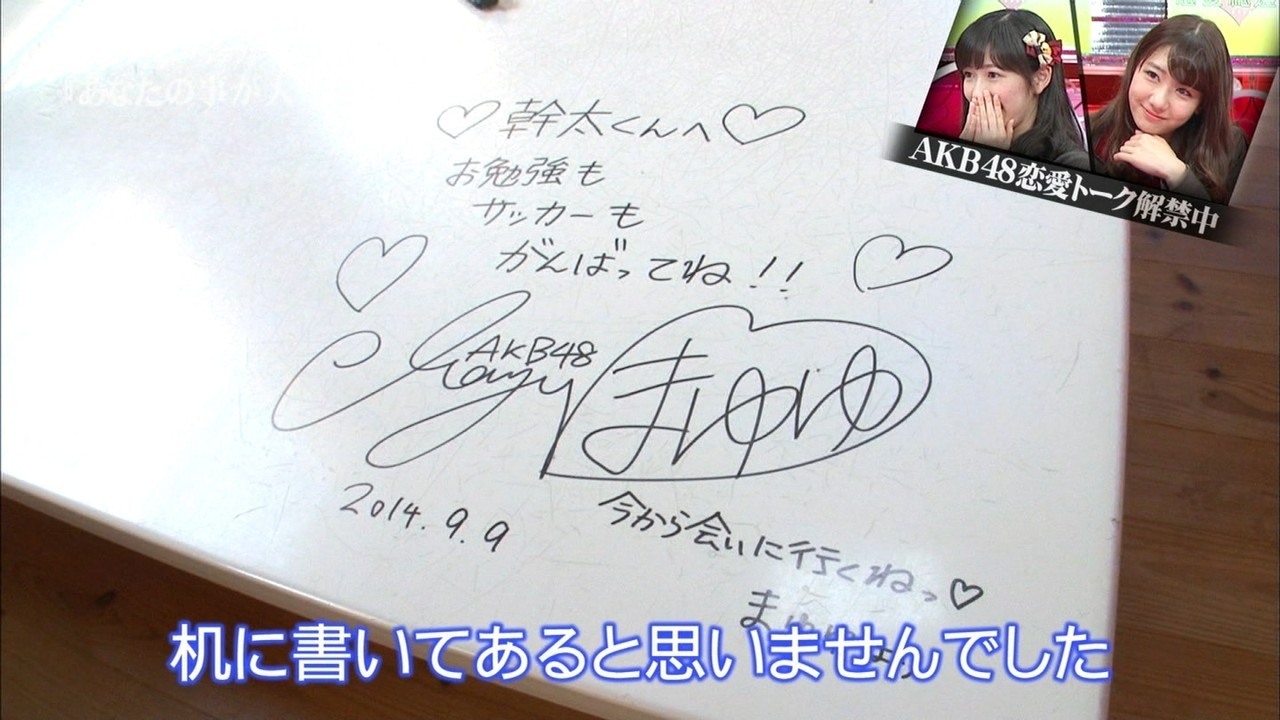 『あなたの事が
AKB48恋愛トーク解禁中
幹太くんへ
お勉強も
サッカーも
がんばってね!!
AKB48
Mayu
まゆゆ
2014.9.9
今から会いに行くねっ♡
机に書いてあると思いませんでした